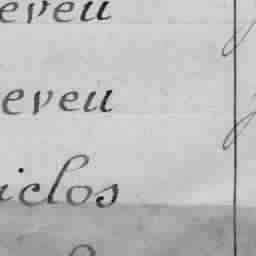 eveu
eveu
iclos